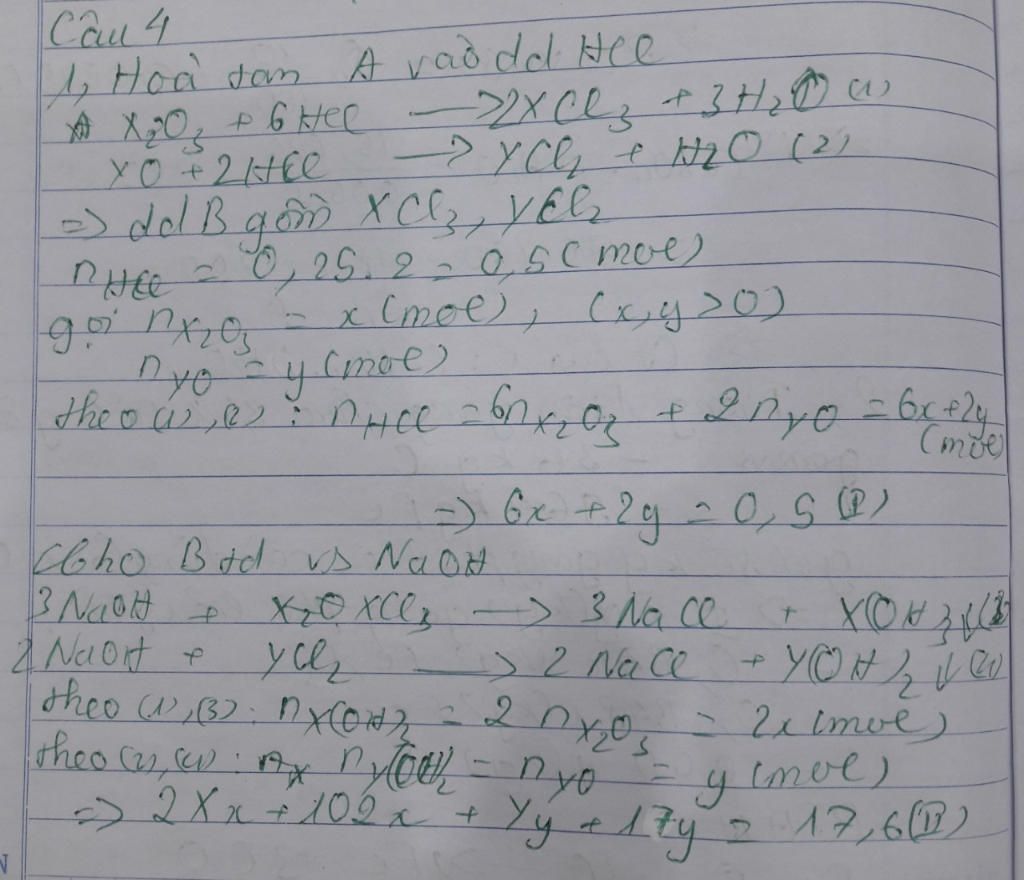 Câu 4
1, Hoà tan A vào dd HCl
X₂O₃ + 6HCl → 2XCl₃ + 3H₂O (1)
YO + 2HCl → YCl₂ + H₂O (2)
=> dd B gồm XCl₃, YCl₂
nHCl = 0,25.2 = 0,5 (mol)
gọi nX₂O₃ = x (mol), (x,y>0)
nYO = y (mol)
theo (1),(2): nHCl = 6nX₂O₃ + 2nYO = 6x+2y
(mol)
=> 6x + 2y = 0,5 (I)
Cho B td vs NaOH
3NaOH + XCl₃ → 3NaCl + X(OH)₃↓(3)
2NaOH + YCl₂ → 2NaCl + Y(OH)₂↓(4)
theo (1),(3): nX(OH)₃ = 2nX₂O₃ = 2x (mol)
theo (2),(4): nY(OH)₂ = nYO = y (mol)
=> 2Xx + 102x + Yy + 17y = 17,6 (II)